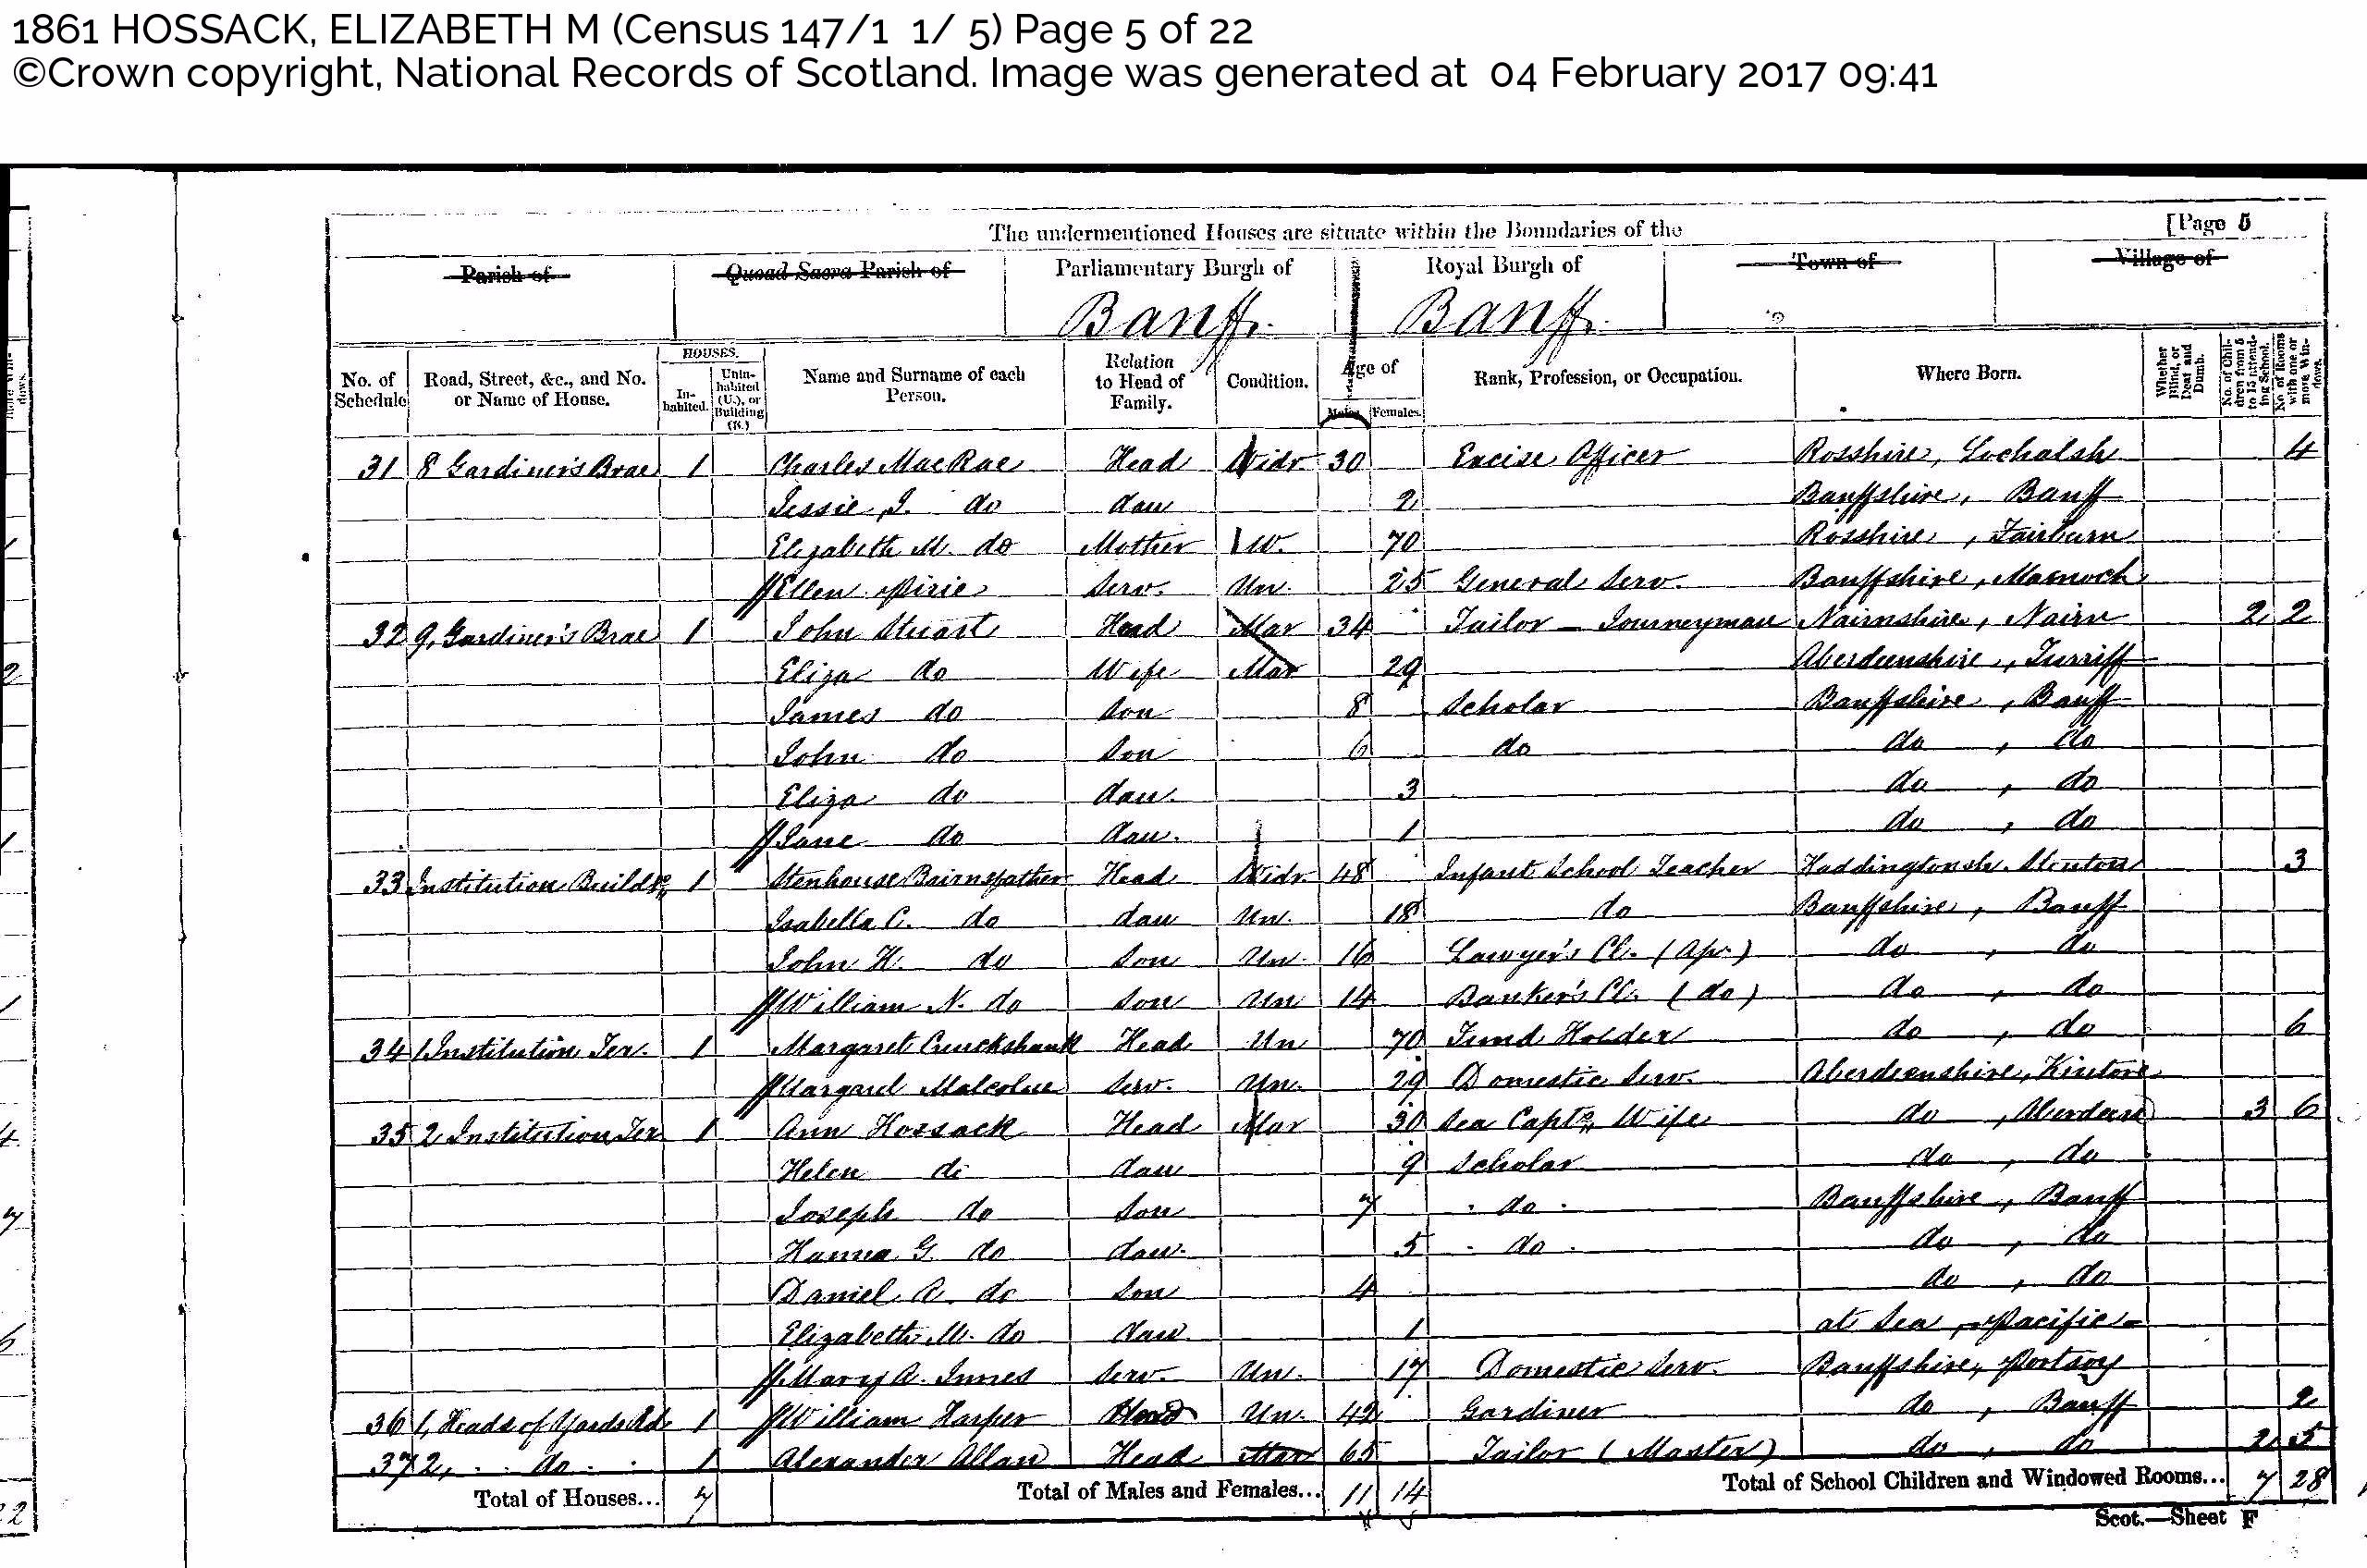 1861 HOSSACK, ELIZABETH M (Census 147/1 1/ 5) Page 5 of 22
©Crown copyright, National Records of Scotland. Image was generated at 04 February 2017 09:41
[Page 5
The undermentioned Houses are situate within the Boundaries of the
Parish of Quoad Sacra Parish of Parliamentary Burgh of Royal Burgh of Town of Village of
Banff. Banff.
No. of Schedule Road, Street, &c., and No. or Name of House. HOUSES. Inhabited. Uninhabited (U.), or Building (B.) Name and Surname of each Person. Relation to Head of Family. Condition. Age of Males. Females. Rank, Profession, or Occupation. Where Born. Whether Blind, or Deaf and Dumb. No. of Children from 5 to 15 attending School. No. of Rooms with one or more Windows.
31 8 Gardiner's Brae 1 Charles MacRae Head Widr 30 Excise Officer Rosshire, Lochalsh 4
Jessie, J. do dau 2 Banffshire, Banff
Elizabeth M. do Mother W. 70 Rosshire, Fairburn
Ellen Pirie Serv. Un. 25 General Serv. Banffshire, Marnoch
32 9, Gardiner's Brae 1 John Stuart Head Mar 34 Tailor - Journeyman Nairnshire, Nairn 2 2
Eliza do Wife Mar 29 Aberdeenshire, Turriff
James do Son 8 Scholar Banffshire, Banff
John do Son 6 do do, do
Eliza do dau. 3 do, do
Jane do dau. 1 do, do
33 Institution Buildgs 1 Stenhouse Bairnsfather Head Widr. 48 Infant School Teacher Haddingtonsh. Stenton 3
Isabella C. do dau Un. 18 do Banffshire, Banff
John H. do Son Un. 16 Lawyer's Cl. (Apr.) do, do
William N. do Son Un 14 Banker's Cl. (do) do, do
34 1 Institution Ter. 1 Margaret Cruickshank Head Un 70 Fund Holder do, do 6
Margaret Malcolm Serv. Un. 29 Domestic Serv. Aberdeenshire, Kintore
35 2 Institution Ter 1 Ann Hossack Head Mar 30 Sea Captn Wife do, Aberdeen 3 6
Helen do dau 9 Scholar do, do
Joseph do Son 7 do Banffshire, Banff
Hanna G. do dau. 5 do do, do
Daniel A. do Son 4 do, do
Elizabeth M. do dau 1 at Sea, Pacific
Mary A. Innes Serv. Un. 17 Domestic Serv. Banffshire, Portsoy
36 1, Heads of Yards Rd 1 William Harper Head Un. 42 Gardiner do, Banff 2
37 2, do 1 Alexander Allan Head Mar 65 Tailor (Master) do, do 2 5
Total of Houses... 7 Total of Males and Females... 11 14 Total of School Children and Windowed Rooms... 7 28
Scot.—Sheet F